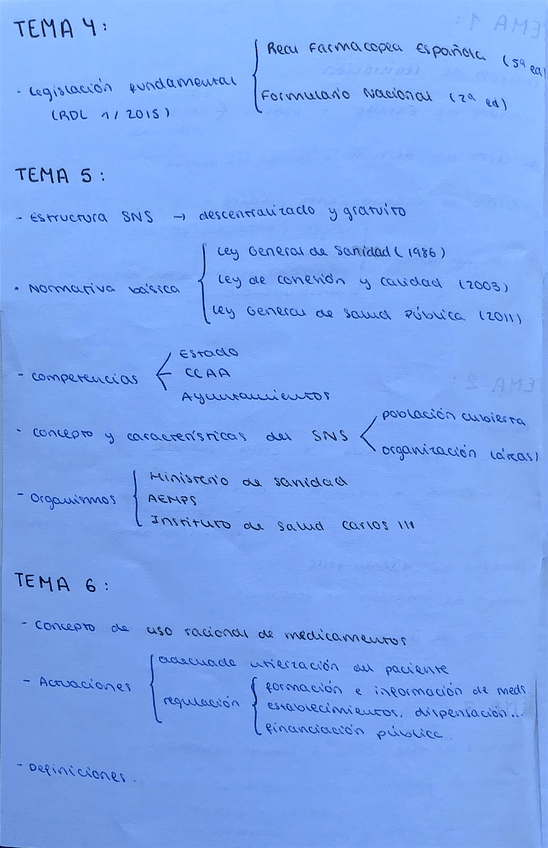 TEMA 4:
Real Farmacopea Española (5ª ed)
- Legislación fundamental
(RDL 1/2015)
Formulario Nacional (2ª ed)
TEMA 5:
- Estructura SNS → descentralizado y gratuito
Ley General de Sanidad (1986)
- Normativa básica
Ley de cohesión y calidad (2003)
Ley General de Salud Pública (2011)
Estado
- Competencias
CCAA
Ayuntamientos
población cubierta
- Concepto y características del SNS
organización (áreas)
Ministerio de Sanidad
- Organismos
AEMPS
Instituto de Salud Carlos III
TEMA 6:
- Concepto de uso racional de medicamentos
adecuada utilización del paciente
- Actuaciones
regulación
formación e información de meds
establecimientos, dispensación...
financiación pública
- Definiciones.